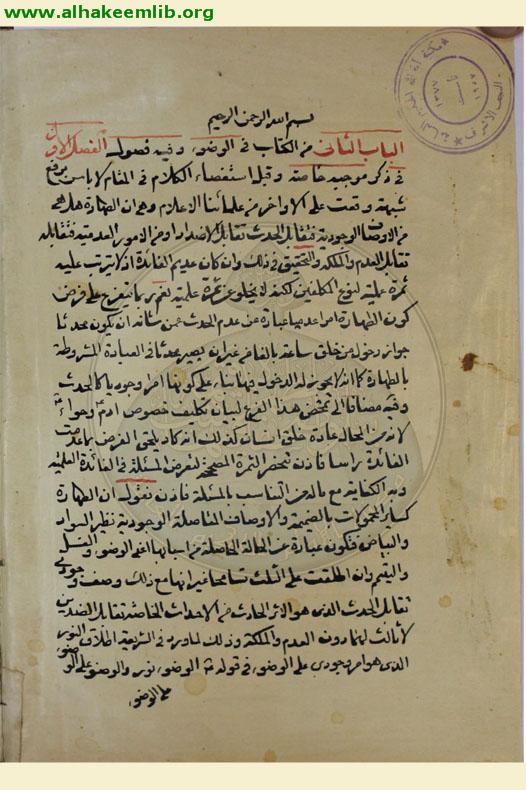 www.alhakeemlib.org
بسم الله الرحمن الرحيم
الباب الثاني من الكتاب في الوضوء وفيه فصول الفصل الاول
في ذكر موجبه خاصة وقبل استقصاء الكلام في المقام لا باس برفع
شبهة وقعت على الاواخر من علمائنا الاعلام وهي ان الطهارة هل هي
من الاوصاف الوجودية فتقابل الحدث تقابل الاضداد او من الامور العدمية فتقابله
تقابل العدم والملكة والتحقيق في ذلك وان كان عديم الفائدة اذ لا يترتب عليه
ثمرة عملية لنوع المكلفين لكنه لا يخلو عن ثمرة علمية نعم ربما يتفرع على فرض
كون الطهارة امرا عدميا عبارة عن عدم الحدث عمن شانه ان يكون محدثا
جواز دخول من خلق ساعة بالغا من غير ان يصير محدثا في العبادة المشروطة
بالطهارة كما انه لا يجوز له الدخول فيها بناء على كونها امرا وجوديا كالحدث
وفيه مضافا الى تمحض هذا الفرع لبيان تكليف خصوص ادم وحواء
لانه من المحال عادة خلق انسان كذلك انه كاد يلحق الفرض بما عدمت
الفائدة راسا فاذن تنحصر الثمرة المصححة لفرض المسئلة في الفائدة العلمية
وبه الكفاية مع ما له من التناسب بالمسئلة فاذن نقول ان الطهارة
كسائر المحمولات بالضميمة والاوصاف المتاصلة الوجودية نظير السواد
والبياض فتكون عبارة عن الحالة الحاصلة من اسبابها اعني الوضوء والغسل
والتيمم وان اطلقت على الثلث تسامحا غير انها مع ذلك وصف وجودي
تقابل الحدث الذي هو الاثر الحادث من الاحداث الخاصة تقابل الضدين
لا ثالث لهما دون العدم والملكة وذلك لما ورد في الشريعة اطلاق النور
الذي هو امر وجودي على الوضوء في قوله الوضوء نور والوضوء على الوضوء
على الوضوء